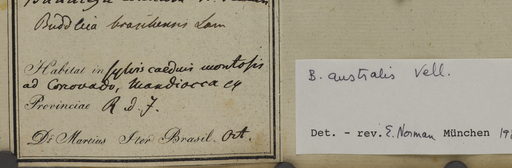 Buddleia brasiliensis Lam
Habitat in sylvis caeduis montosis
ad Corovado, Mandiocca &
Provinciae R d. J.
Dr Martius Iter Brasil. Oct.
B. australis Vell.
Det. - rev. E. Norman München